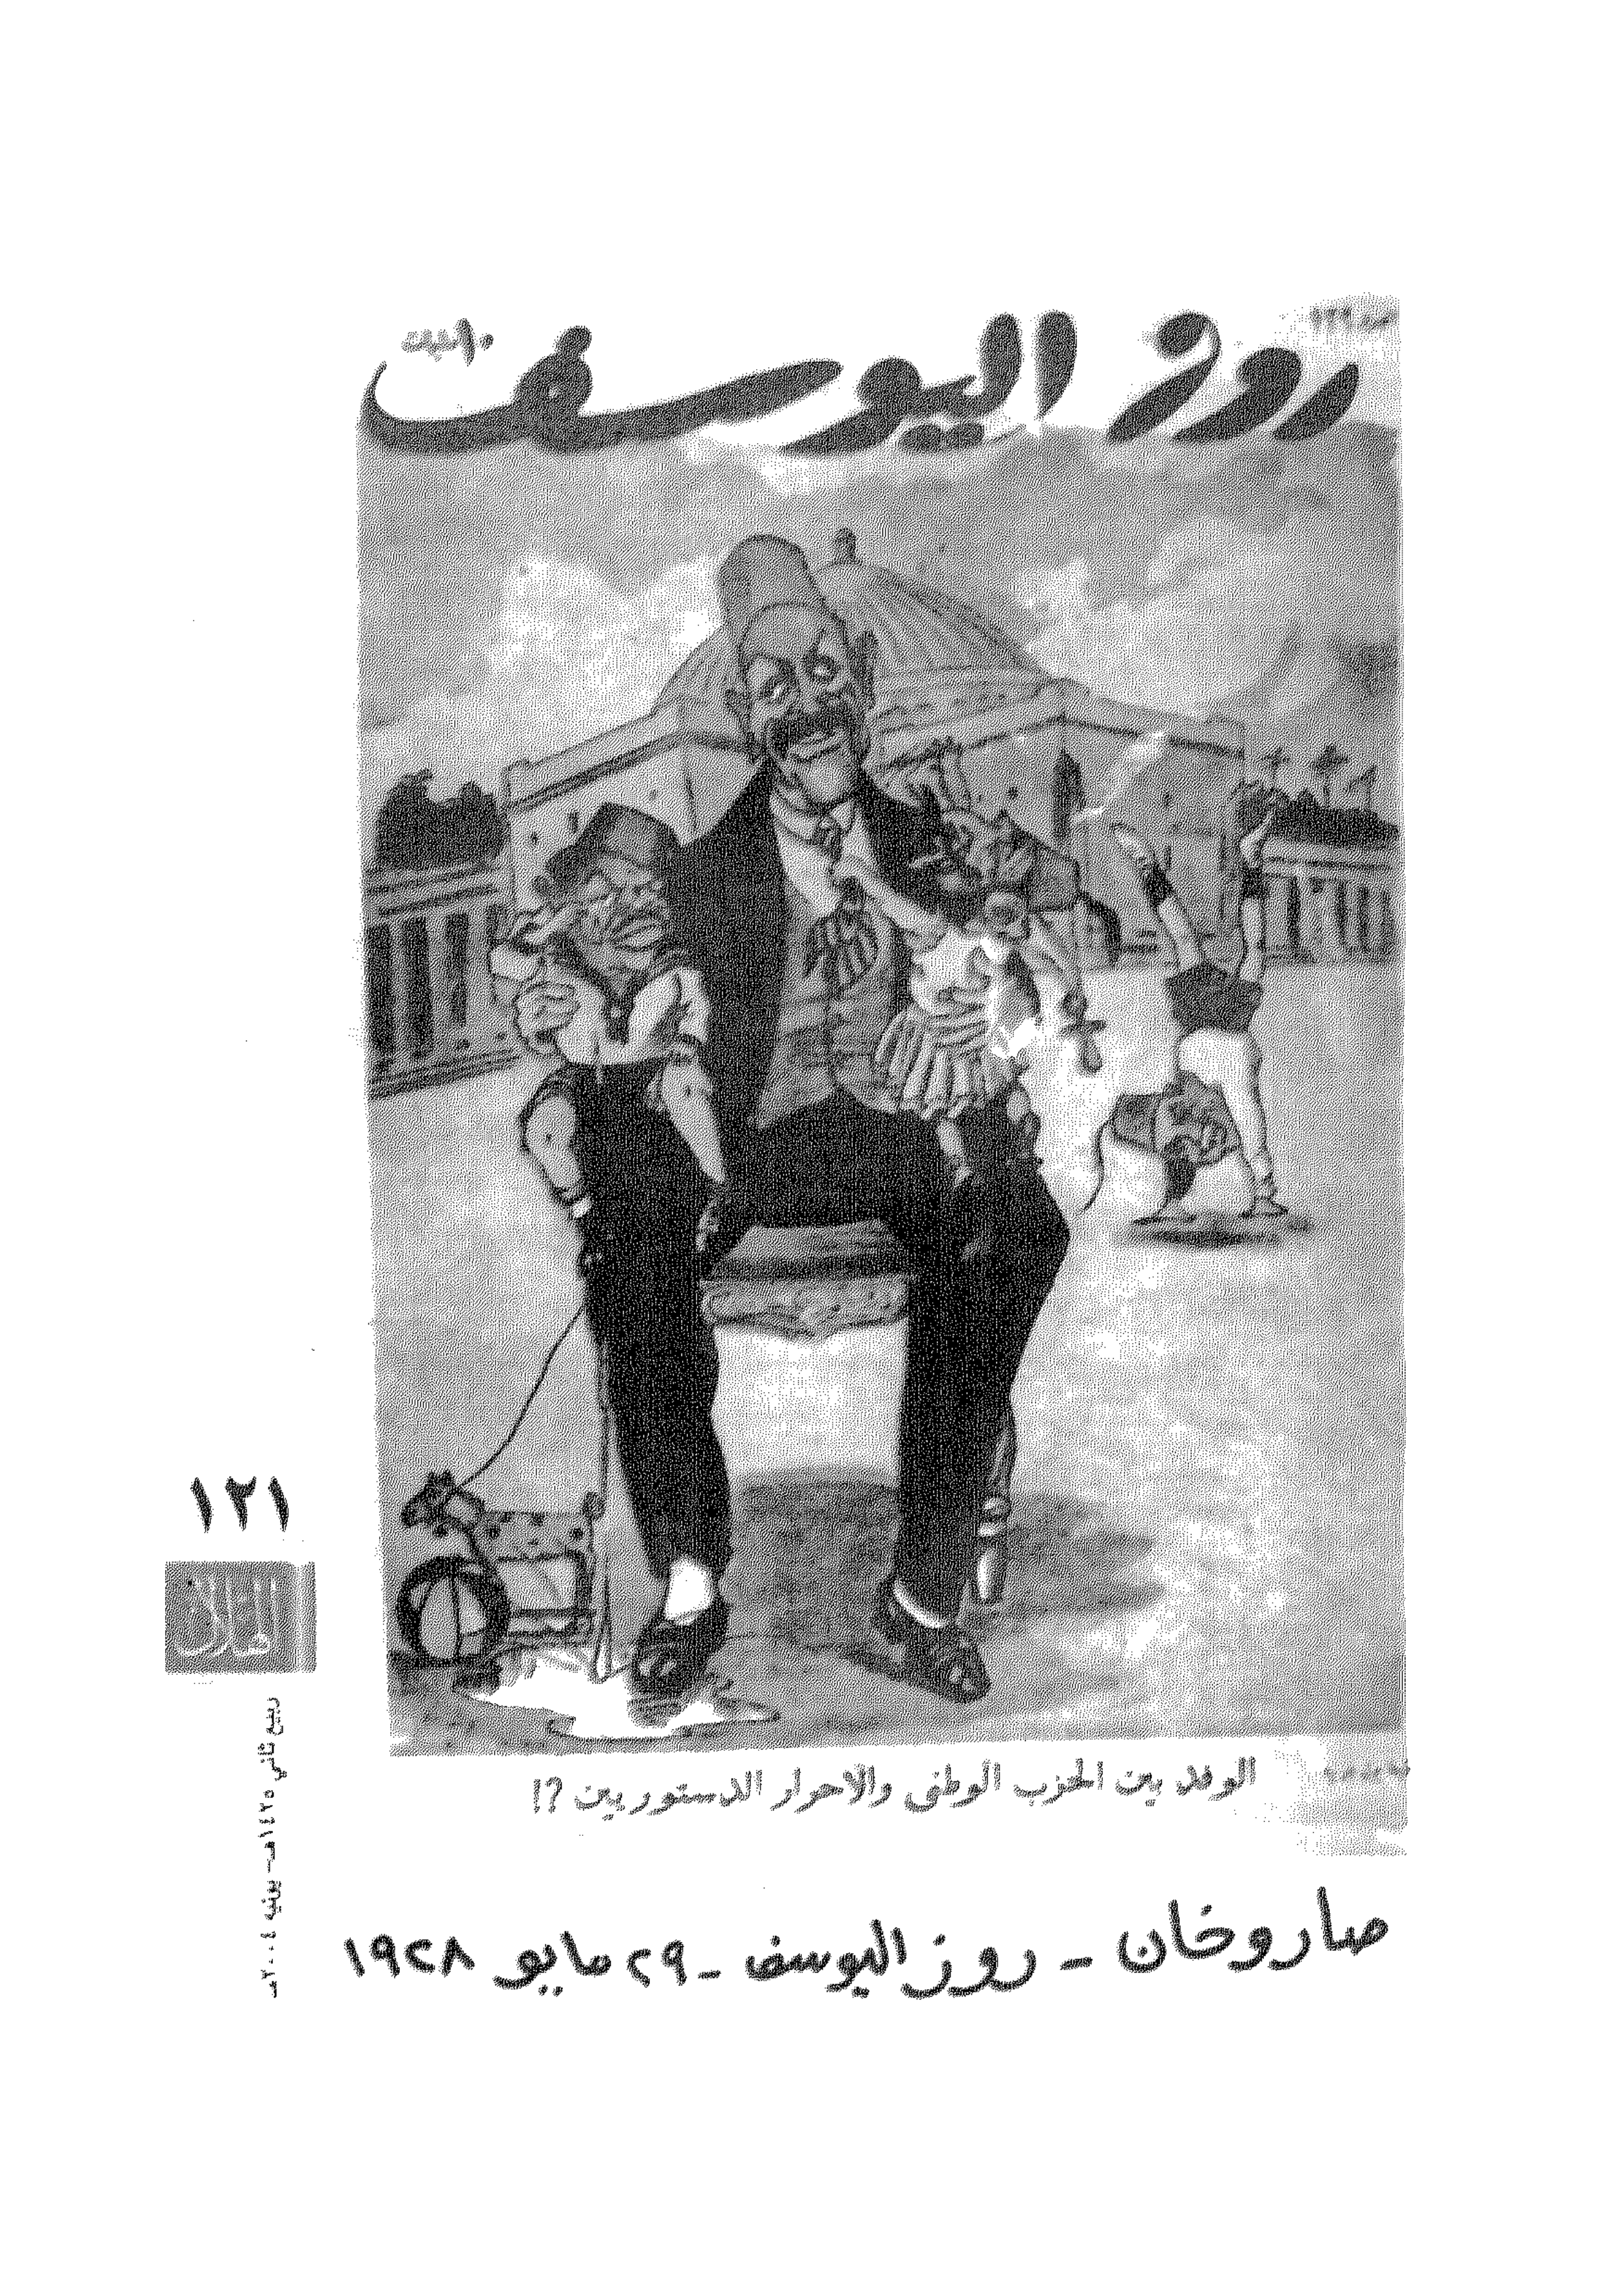 روز اليوسف
الوفد بين الحزب الوطنى والاحرار الدستوريين ?!
صاروخان - روز اليوسف - ٢٩ مايو ١٩٢٨
١٢١
الهلال
ربيع ثاني ١٤٢٥هـ - يونيه ٢٠٠٤مـ